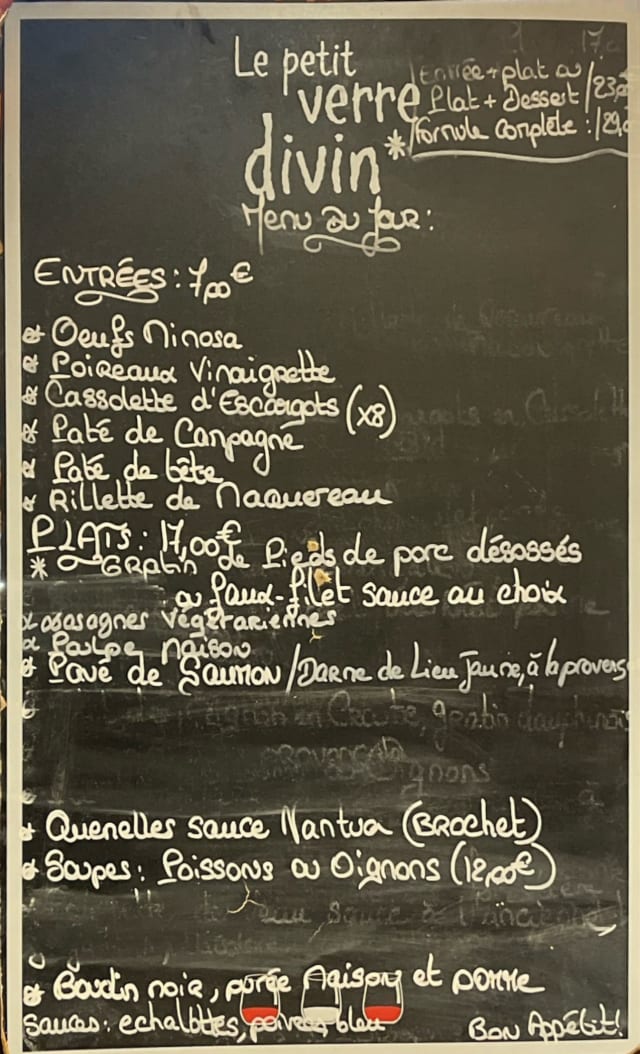 Le petit
verre
divin
Entrée + plat ou
Plat + Dessert / 23,
* / Formule Complète : / 29,
Menu Du Jour :
ENTRÉES : 7,00€
* Oeufs Minosa
* Poireaux Vinaigrette
* Cassolette d'Escargots (x8)
* Paté de Canpagne
* Paté de tête
* Rillette de Maquereau
PLATS : 17,00€
* GRatin de Pieds de porc désossés
ou faux-filet sauce au choix
* Lasagnes Végétariennes
* Poulpe Maison
* Pavé de Saumon / Darne de Lieu Jaune, à la provens
* Quenelles sauce Nantua (BRochet)
* Soupes : Poissons ou Oignons (12,00€)
* Boudin noir, purée Maison et pomme
Sauces : echalottes, poivre, bleu
Bon Appétit !